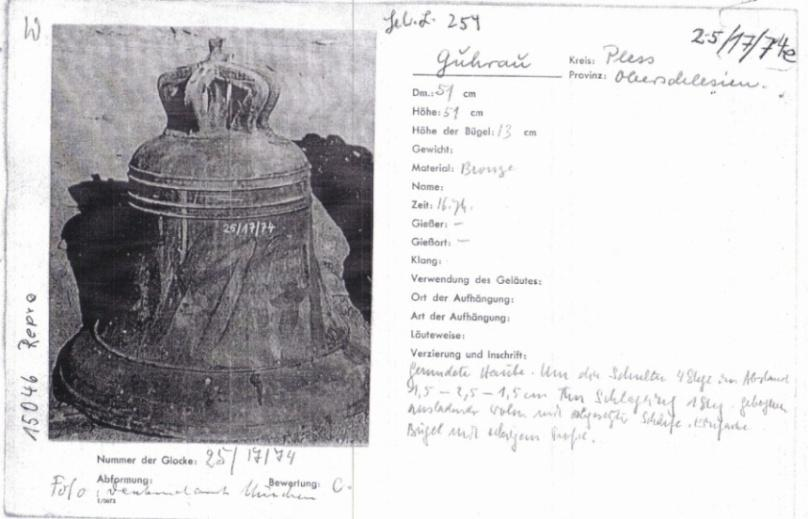 W
Leb. L. 254
25/17/74e
Guhrau
Kreis: Pless
Provinz: Oberschlesien.
Dm.: 51 cm
Höhe: 51 cm
Höhe der Bügel: 13 cm
Gewicht:
Material: Bronze
Name:
Zeit: 16. Jh.
Gießer: –
Gießort: –
Klang:
Verwendung des Geläutes:
Ort der Aufhängung:
Art der Aufhängung:
Läuteweise:
Verzierung und Inschrift:
Gerundete Haube. Um die Schulter 4 Stege im Abstand
1,5 – 2,5 – 1,5 cm Am Schlagring 1 Steg, gebogen
ausladender und abgesetzter Schärfe.
Bügel mit
25/17/74
15046 Repro
Nummer der Glocke: 25/17/74
Abformung:
Bewertung: C.
Foto Denkmalamt München